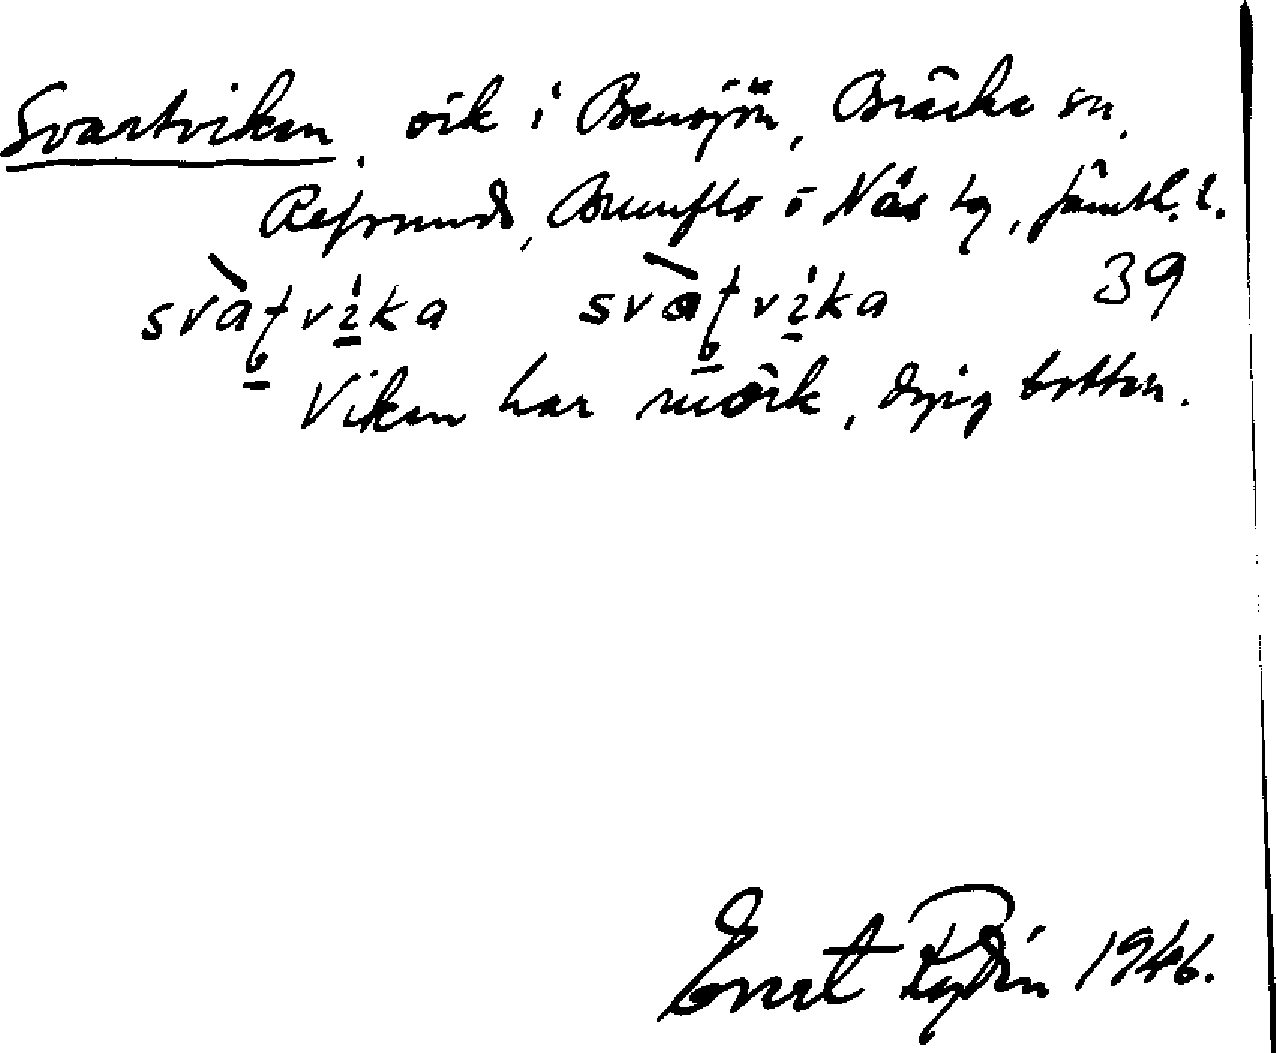 Svartviken, vik i Bensjön, Bräcke sn,
Refsunds, Brunflo o Näs tg, Jämtl. l.
svàʈvika svàʈvika 39
Viken har mörk, dyig botten.
Ernst Rydén 1946.